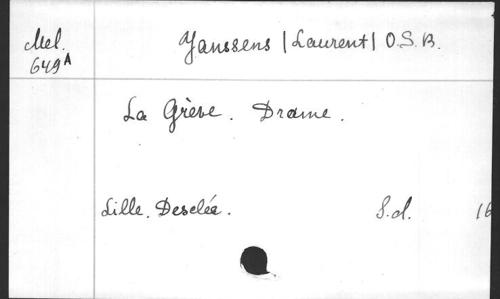 Mel.
649A
Janssens |Laurent| O.S.B.
La Grève. Drame.
Lille. Desclée. S.d. 16